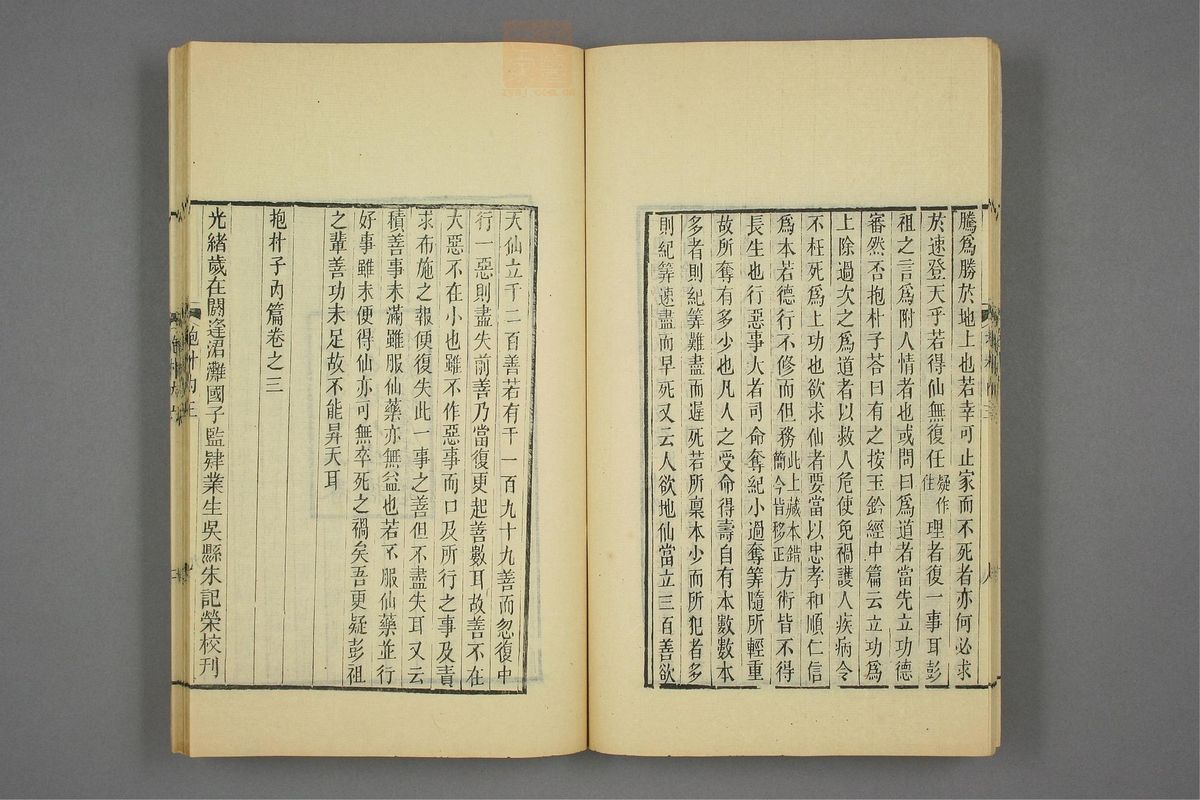 騰爲勝於地上也若幸可止家而不死者亦何必求
於速登天乎若得仙無復任疑作住理者復一事耳彭
祖之言爲附人情者也或問曰爲道者當先立功德
審然否抱朴子荅曰有之按玉鈐經中篇云立功爲
上除過次之爲道者以救人危使免禍護人疾病令
不枉死爲上功也欲求仙者要當以忠孝和順仁信
爲本若德行不修而但務此上藏本錯簡今皆移正方術皆不得
長生也行惡事大者司命奪紀小過奪筭隨所輕重
故所奪有多少也凡人之受命得壽自有本數數本
多者則紀筭難盡而遲死若所稟本少而所犯者多
則紀筭速盡而早死又云人欲地仙當立三百善欲
天仙立千二百善若有千一百九十九善而忽復中
行一惡則盡失前善乃當復更起善數耳故善不在
大惡不在小也雖不作惡事而口及所行之事及責
求布施之報便復失此一事之善但不盡失耳又云
積善事未滿雖服仙藥亦無益也若不服仙藥並行
好事雖未便得仙亦可無卒死之禍矣吾更疑彭祖
之輩善功未足故不能昇天耳
抱朴子內篇卷之三
光緒歲在閼逢涒灘國子監肄業生吳縣朱記榮校刊